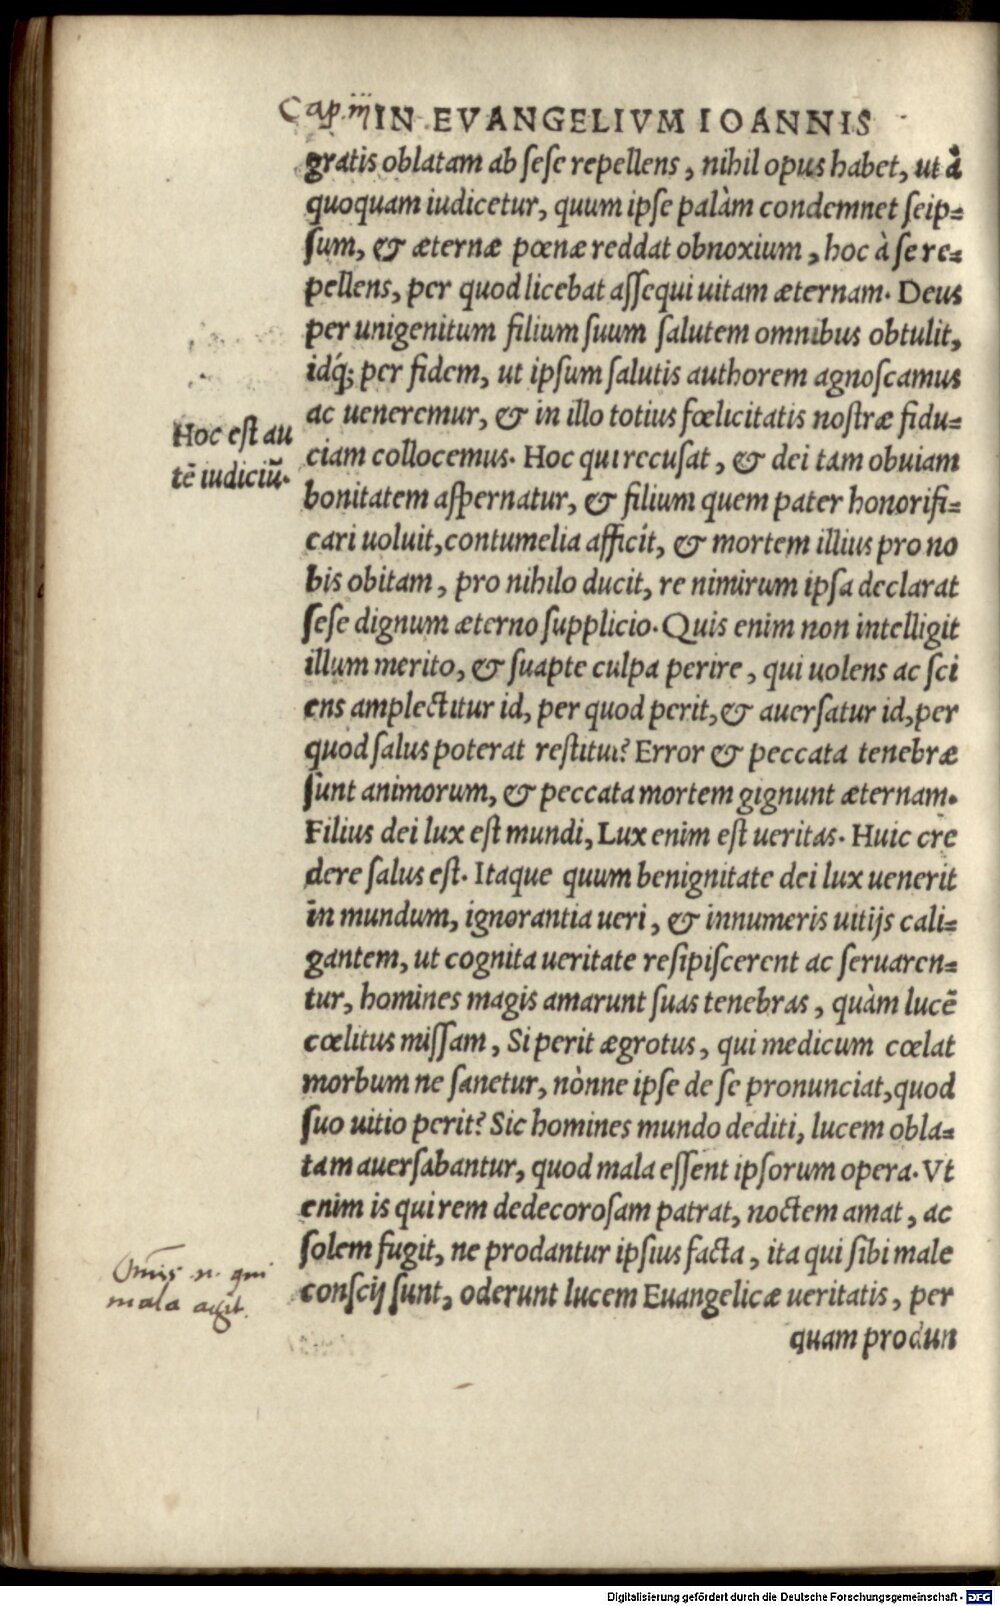 Cap. iii IN EVANGELIVM IOANNIS
gratis oblatam ab sese repellens, nihil opus habet, ut à
quoquam iudicetur, quum ipse palàm condemnet seip=
sum, & æternæ pœnæ reddat obnoxium, hoc à se re=
pellens, per quod licebat assequi uitam æternam. Deus
per unigenitum filium suum salutem omnibus obtulit,
idq́; per fidem, ut ipsum salutis authorem agnoscamus
ac ueneremur, & in illo totius fœlicitatis nostræ fidu=
Hoc est au
tē iudiciū.
ciam collocemus. Hoc qui recusat, & dei tam obuiam
bonitatem aspernatur, & filium quem pater honorifi=
cari uoluit, contumelia afficit, & mortem illius pro no
bis obitam, pro nihilo ducit, re nimirum ipsa declarat
sese dignum æterno supplicio. Quis enim non intelligit
illum merito, & suapte culpa perire, qui uolens ac sci
ens amplectitur id, per quod perit, & auersatur id, per
quod salus poterat restitui? Error & peccata tenebræ
sunt animorum, & peccata mortem gignunt æternam.
Filius dei lux est mundi, Lux enim est ueritas. Huic cre
dere salus est. Itaque quum benignitate dei lux uenerit
in mundum, ignorantia ueri, & innumeris uitijs cali=
gantem, ut cognita ueritate resipiscerent ac seruaren=
tur, homines magis amarunt suas tenebras, quàm lucē
cœlitus missam, Si perit ægrotus, qui medicum cœlat
morbum ne sanetur, nònne ipse de se pronunciat, quod
suo uitio perit? Sic homines mundo dediti, lucem obla=
tam auersabantur, quod mala essent ipsorum opera. Vt
enim is qui rem dedecorosam patrat, noctem amat, ac
solem fugit, ne prodantur ipsius facta, ita qui sibi male
Omīs .n. qui
mala agit.
conscij sunt, oderunt lucem Euangelicæ ueritatis, per
quam produn
Digitalisierung gefördert durch die Deutsche Forschungsgemeinschaft - DFG